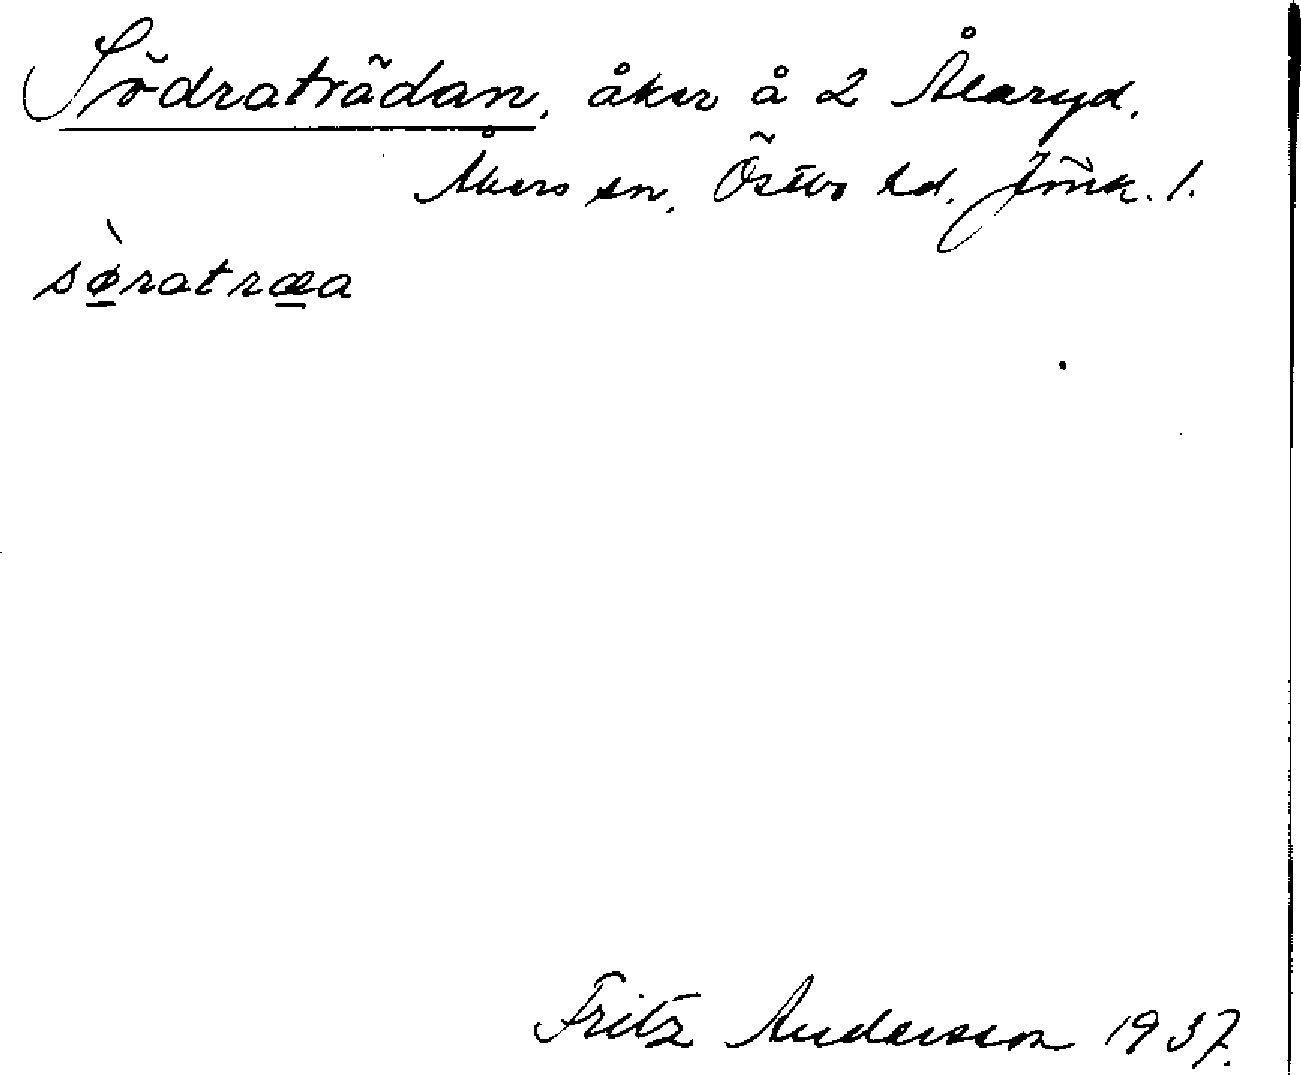 Södraträdan, åker å 2 Ålaryd.
Åkers sn. Östbo hd. Jönk. l.
sø̀ratræa
Fritz Andersson 1937.